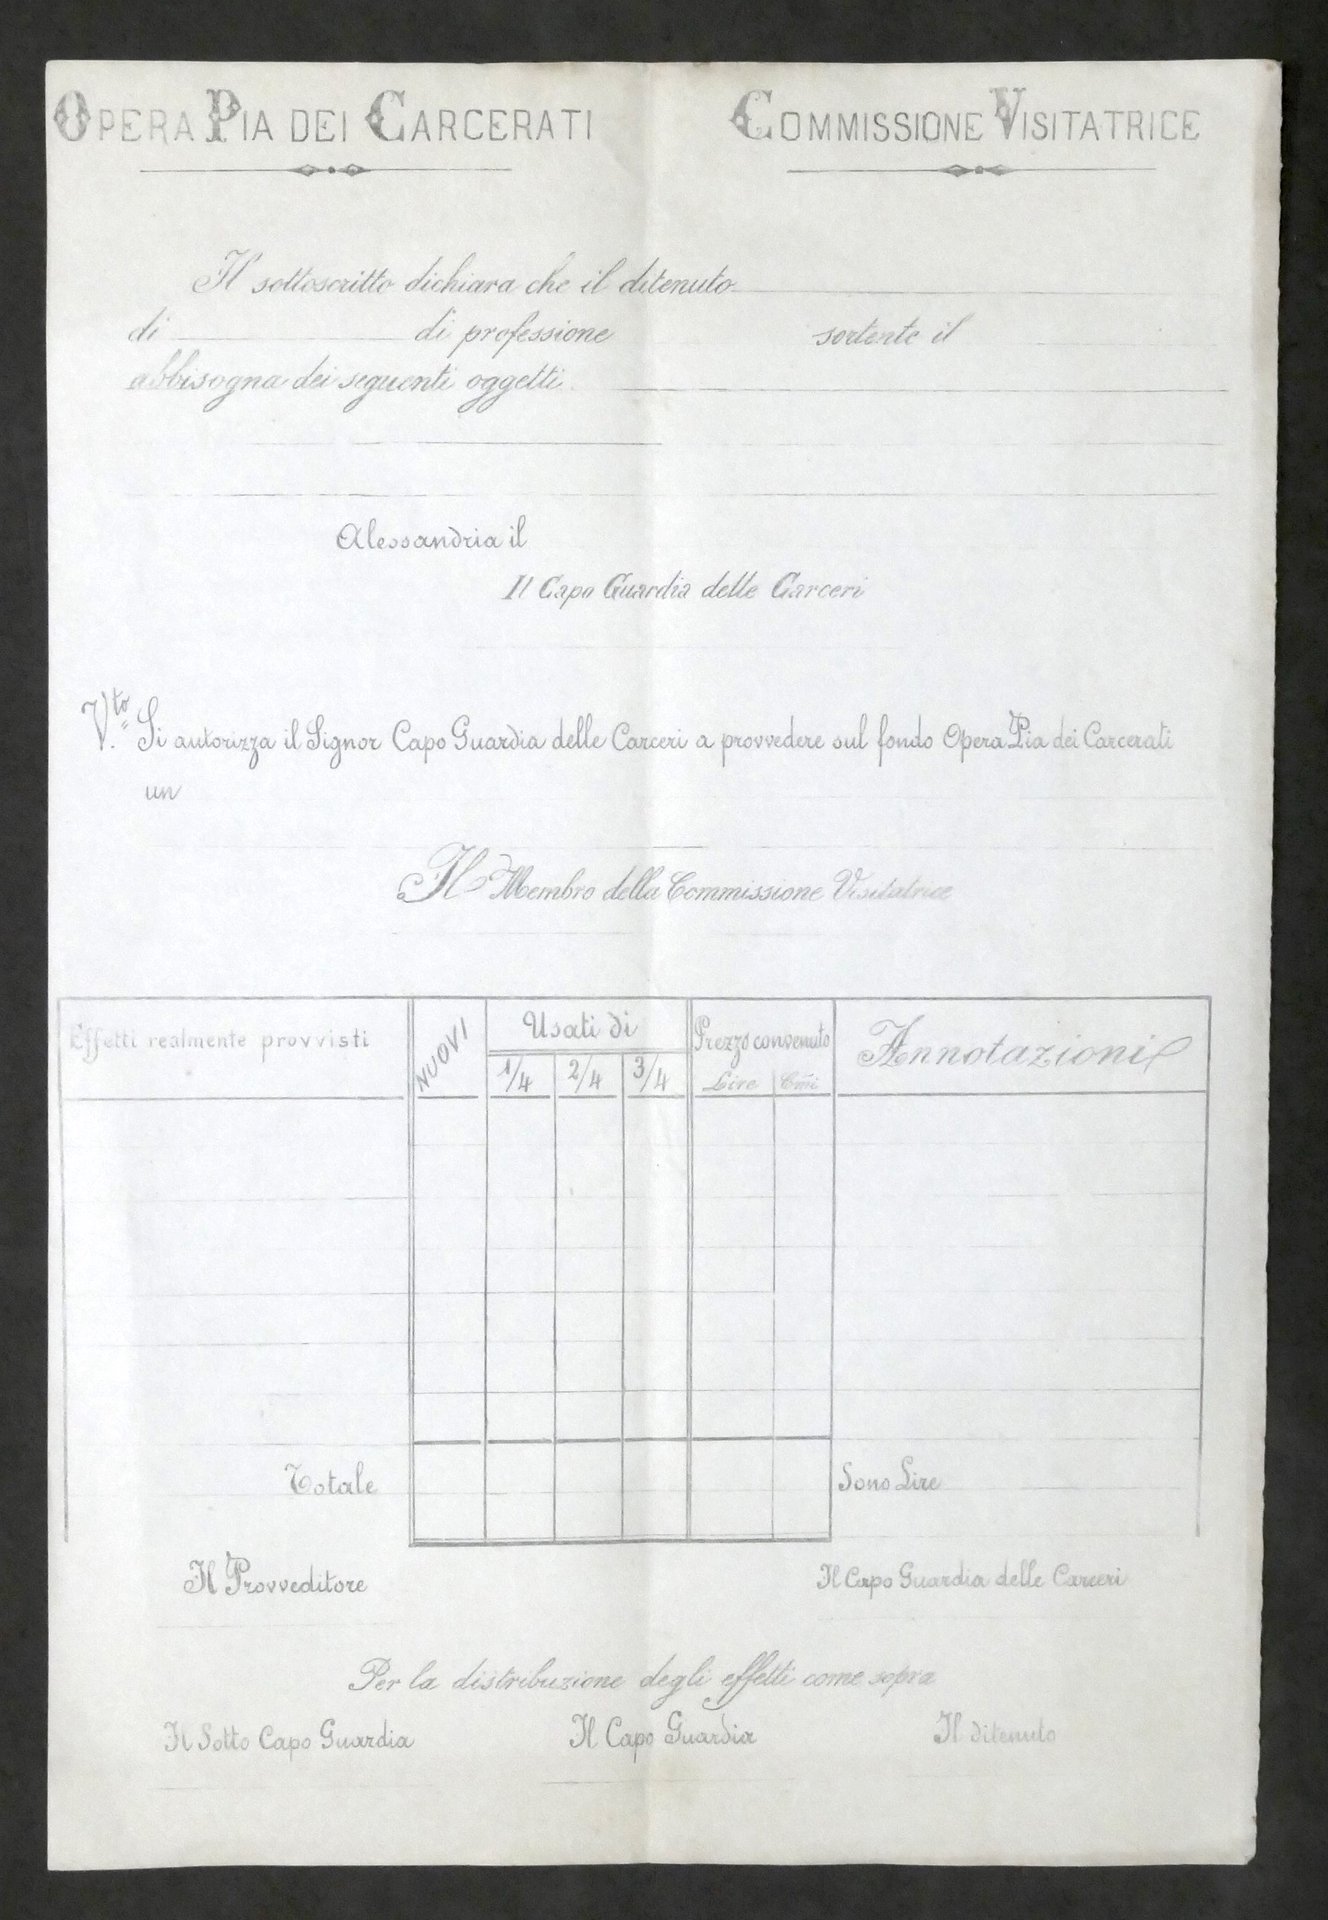 OPERA PIA DEI CARCERATI
COMMISSIONE VISITATRICE
Il sottoscritto dichiara che il ditenuto
di di professione sortente il
abbisogna dei seguenti oggetti
Alessandria il
Il Capo Guardia delle Carceri
V.to Si autorizza il Signor Capo Guardia delle Carceri a provvedere sul fondo Opera Pia dei Carcerati
un
Il Membro della Commissione Visitatrice
Effetti realmente provvisti
NUOVI
Usati di
1/4 2/4 3/4
Prezzo convenuto
Lire Cmi
Annotazioni
Totale
Sono Lire
Il Provveditore
Il Capo Guardia delle Carceri
Per la distribuzione degli effetti come sopra
Il Sotto Capo Guardia
Il Capo Guardia
Il ditenuto